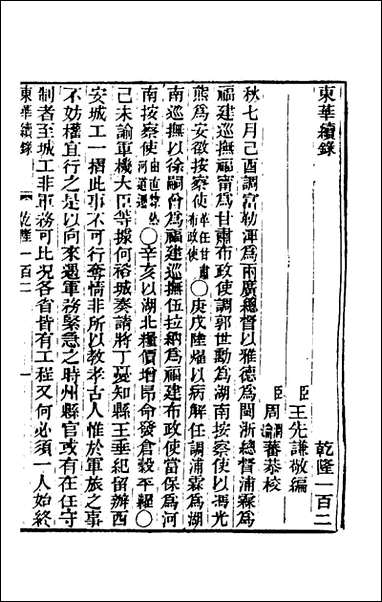 東華續錄　乾隆一百二
臣王先謙敬編
臣周瀹蕃恭校
秋七月己酉調富勒渾為兩廣總督以雅德為閩浙總督浦霖為
福建巡撫富甯為甘肅布政使調郭世勳為湖南按察使以馮光
熊為安徽按察使革任甘肅布政使○庚戌陸燿以病解任調浦霖為湖
南巡撫以徐嗣曾為福建巡撫伍拉納為福建布政使富保為河
南按察使由直隸熱河道遷○辛亥以湖北糧價增昂命發倉穀平糶○
己未諭軍機大臣等據何裕城奏請將丁憂知縣王垂紀留辦西
安城工一摺此事不可行奪情非所以教孝古人惟於軍旅之事
不妨權宜行之是以向來遇軍務緊急之時州縣官或有在任守
制者至城工非軍務可比況各省皆有工程又何必須一人始終
東華續錄　乾隆一百二　一